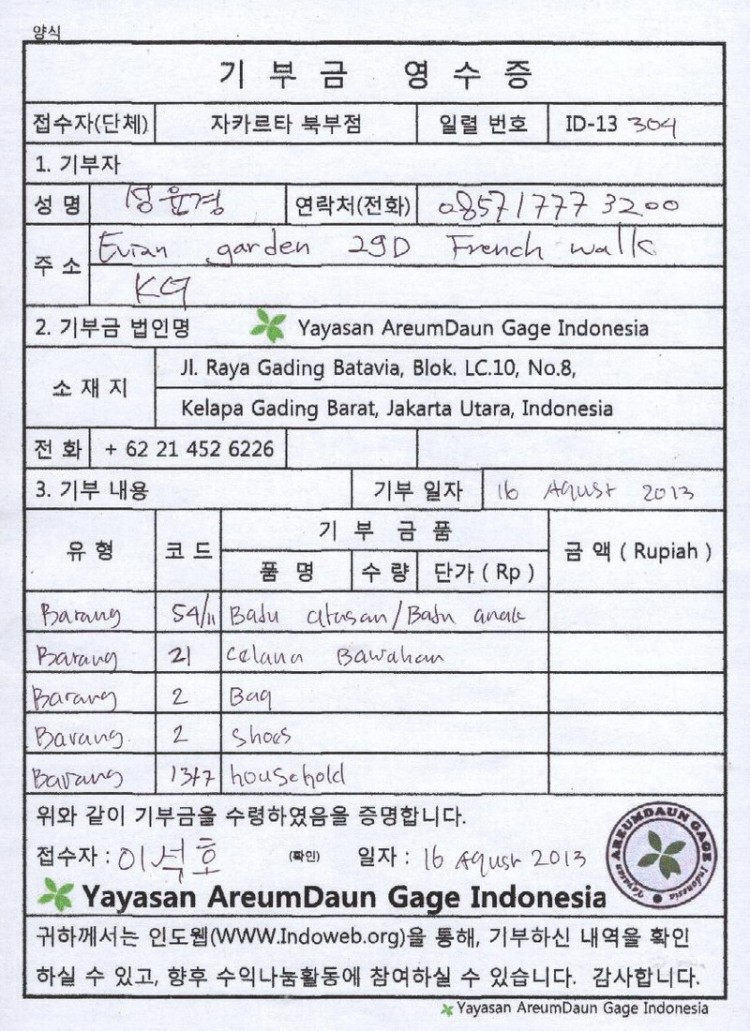 양식
기 부 금 영 수 증
접수자(단체) 자카르타 북부점 일렬 번호 ID-13 304
1. 기부자
성 명 정윤경 연락처(전화) 08571777 3200
주 소 Evian garden 29D French walks
KG
2. 기부금 법인명 Yayasan AreumDaun Gage Indonesia
소 재 지 Jl. Raya Gading Batavia, Blok. LC.10, No.8,
Kelapa Gading Barat, Jakarta Utara, Indonesia
전 화 + 62 21 452 6226
3. 기부 내용 기부 일자 16 Agust 2013
유 형 코 드 기 부 금 품 금 액 ( Rupiah )
품 명 수 량 단가 ( Rp )
Barang 54/11 Badu atasan/Badu anak
Barang 21 Celana Bawahan
Barang 2 Bag
Barang. 2 Shoes
Barang household
위와 같이 기부금을 수령하였음을 증명합니다.
접수자 : 이석호 (확인) 일자 : 16 Agust 2013
AREUMDAUN GAGE Yayasan Indonesia
Yayasan AreumDaun Gage Indonesia
귀하께서는 인도웹(WWW.Indoweb.org)을 통해, 기부하신 내역을 확인
하실 수 있고, 향후 수익나눔활동에 참여하실 수 있습니다. 감사합니다.
Yayasan AreumDaun Gage Indonesia